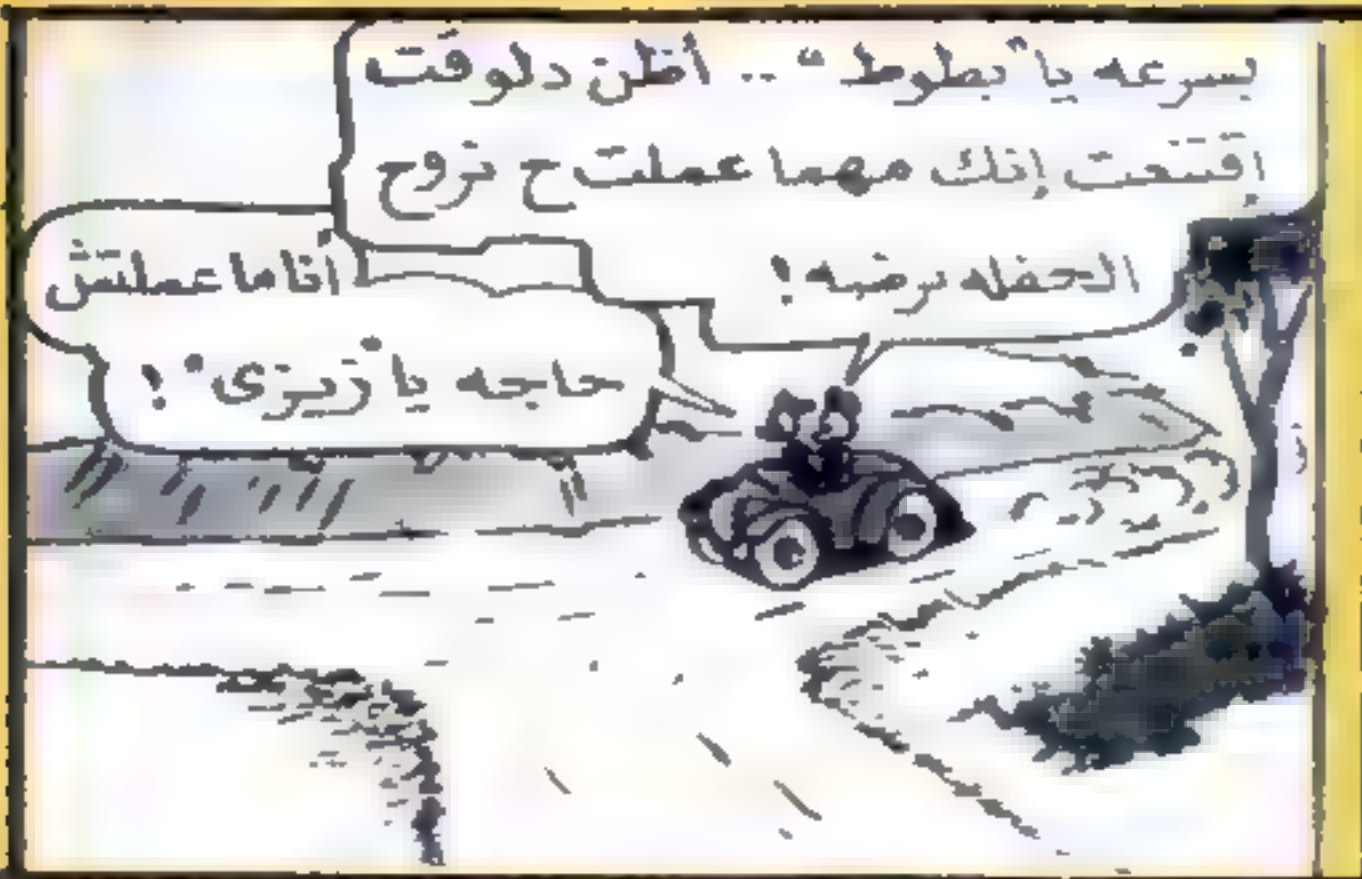 بسرعه يا "بطوط" .. أظن دلوقت
إقتنعت إنك مهما عملت ح نروح
الحفله برضه !
أنا ما عملتش
حاجه يا "زيزى" !